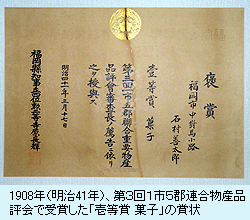 褒賞
福岡市中野馬小路
石村善太郎
壹等賞 菓子
第三回一市五郡聯合重要物産
品評會審査長ノ薦告ニ依リ
之ヲ授與ス
明治四十一年三月十七日
福岡縣知事
1908年(明治41年)、第3回1市5郡連合物産品
評会で受賞した「壱等賞 菓子」の賞状